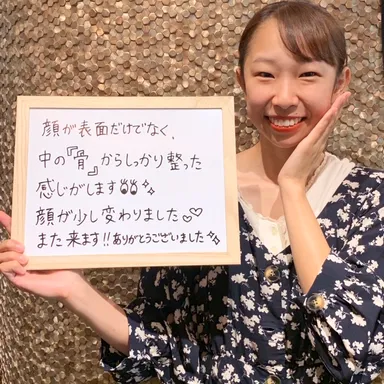 顔が表面だけでなく、
中の『骨』からしっかり整った
感じがします
顔が少し変わりました♡♡
また来ます!!ありがとうございました